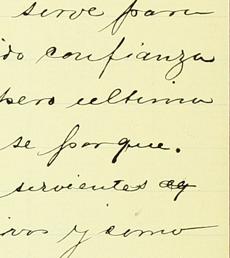 serve para
do confianza
pero ultima
se porque.
servientes
vos y como